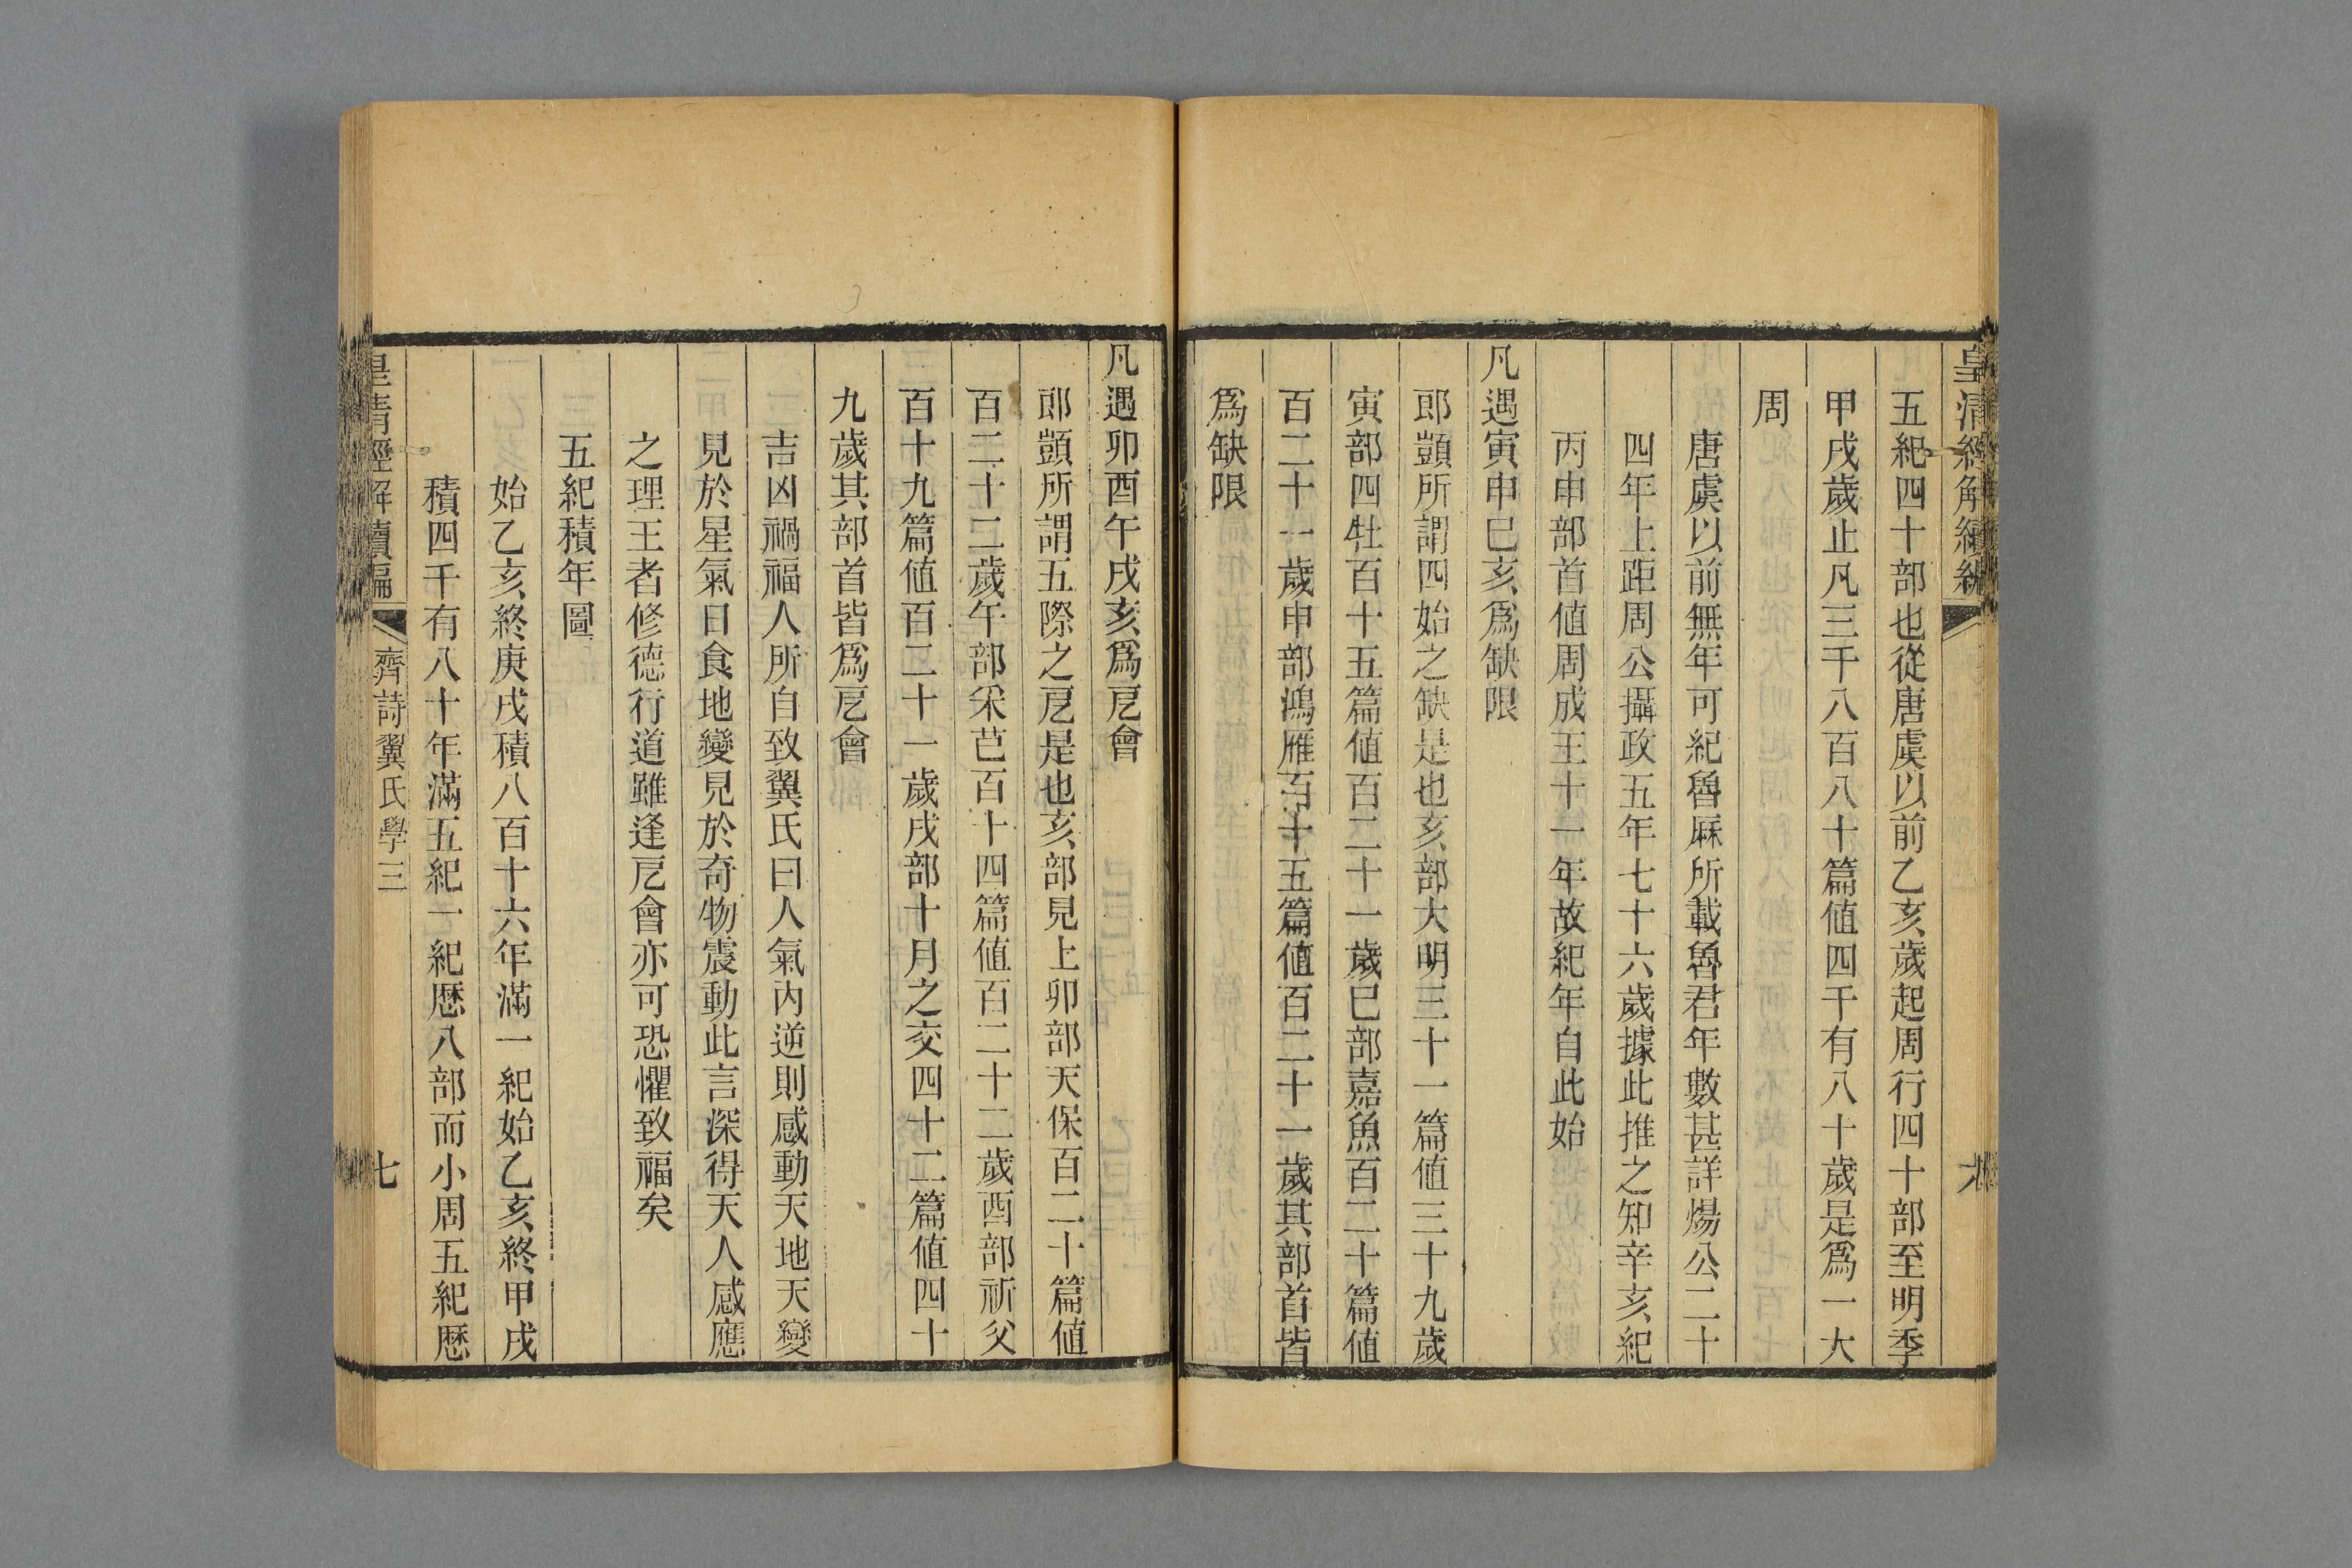 皇清經解續編
五紀四十部也從唐虞以前乙亥歲起周行四十部至明季
甲戌歲止凡三千八百八十篇值四千有八十歲是爲一大
周
唐虞以前無年可紀魯厤所載魯君年數甚詳煬公二十
四年上距周公攝政五年七十六歲據此推之知辛亥紀
丙申部首值周成王十一年故紀年自此始
凡遇寅申巳亥爲缺限
郎顗所謂四始之缺是也亥部大明三十一篇值三十九歲
寅部四牡百十五篇值百二十一歲巳部嘉魚百二十篇值
百二十一歲申部鴻雁百十五篇值百二十一歲其部首皆
爲缺限
凡遇卯酉午戌亥爲戹會
郎顗所謂五際之戹是也亥部見上卯部天保百二十篇值
百二十二歲午部采芑百十四篇值百二十二歲酉部祈父
百十九篇值百二十一歲戌部十月之交四十二篇值四十
九歲其部首皆爲戹會
吉凶禍福人所自致翼氏曰人氣內逆則感動天地天變
見於星氣日食地變見於奇物震動此言深得天人感應
之理王者修德行道雖逢戹會亦可恐懼致福矣
五紀積年圖
始乙亥終庚戌積八百十六年滿一紀始乙亥終甲戌
積四千有八十年滿五紀一紀歴八部而小周五紀歴
皇清經解續編 齊詩翼氏學三 七